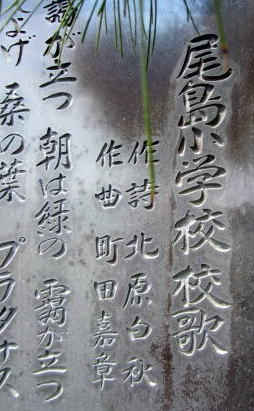 尾島小学校校歌
作詩 北原白秋
作曲 町田嘉章
靄が立つ 朝は緑の 靄が立つ
よげ 桑の葉 プラタナス